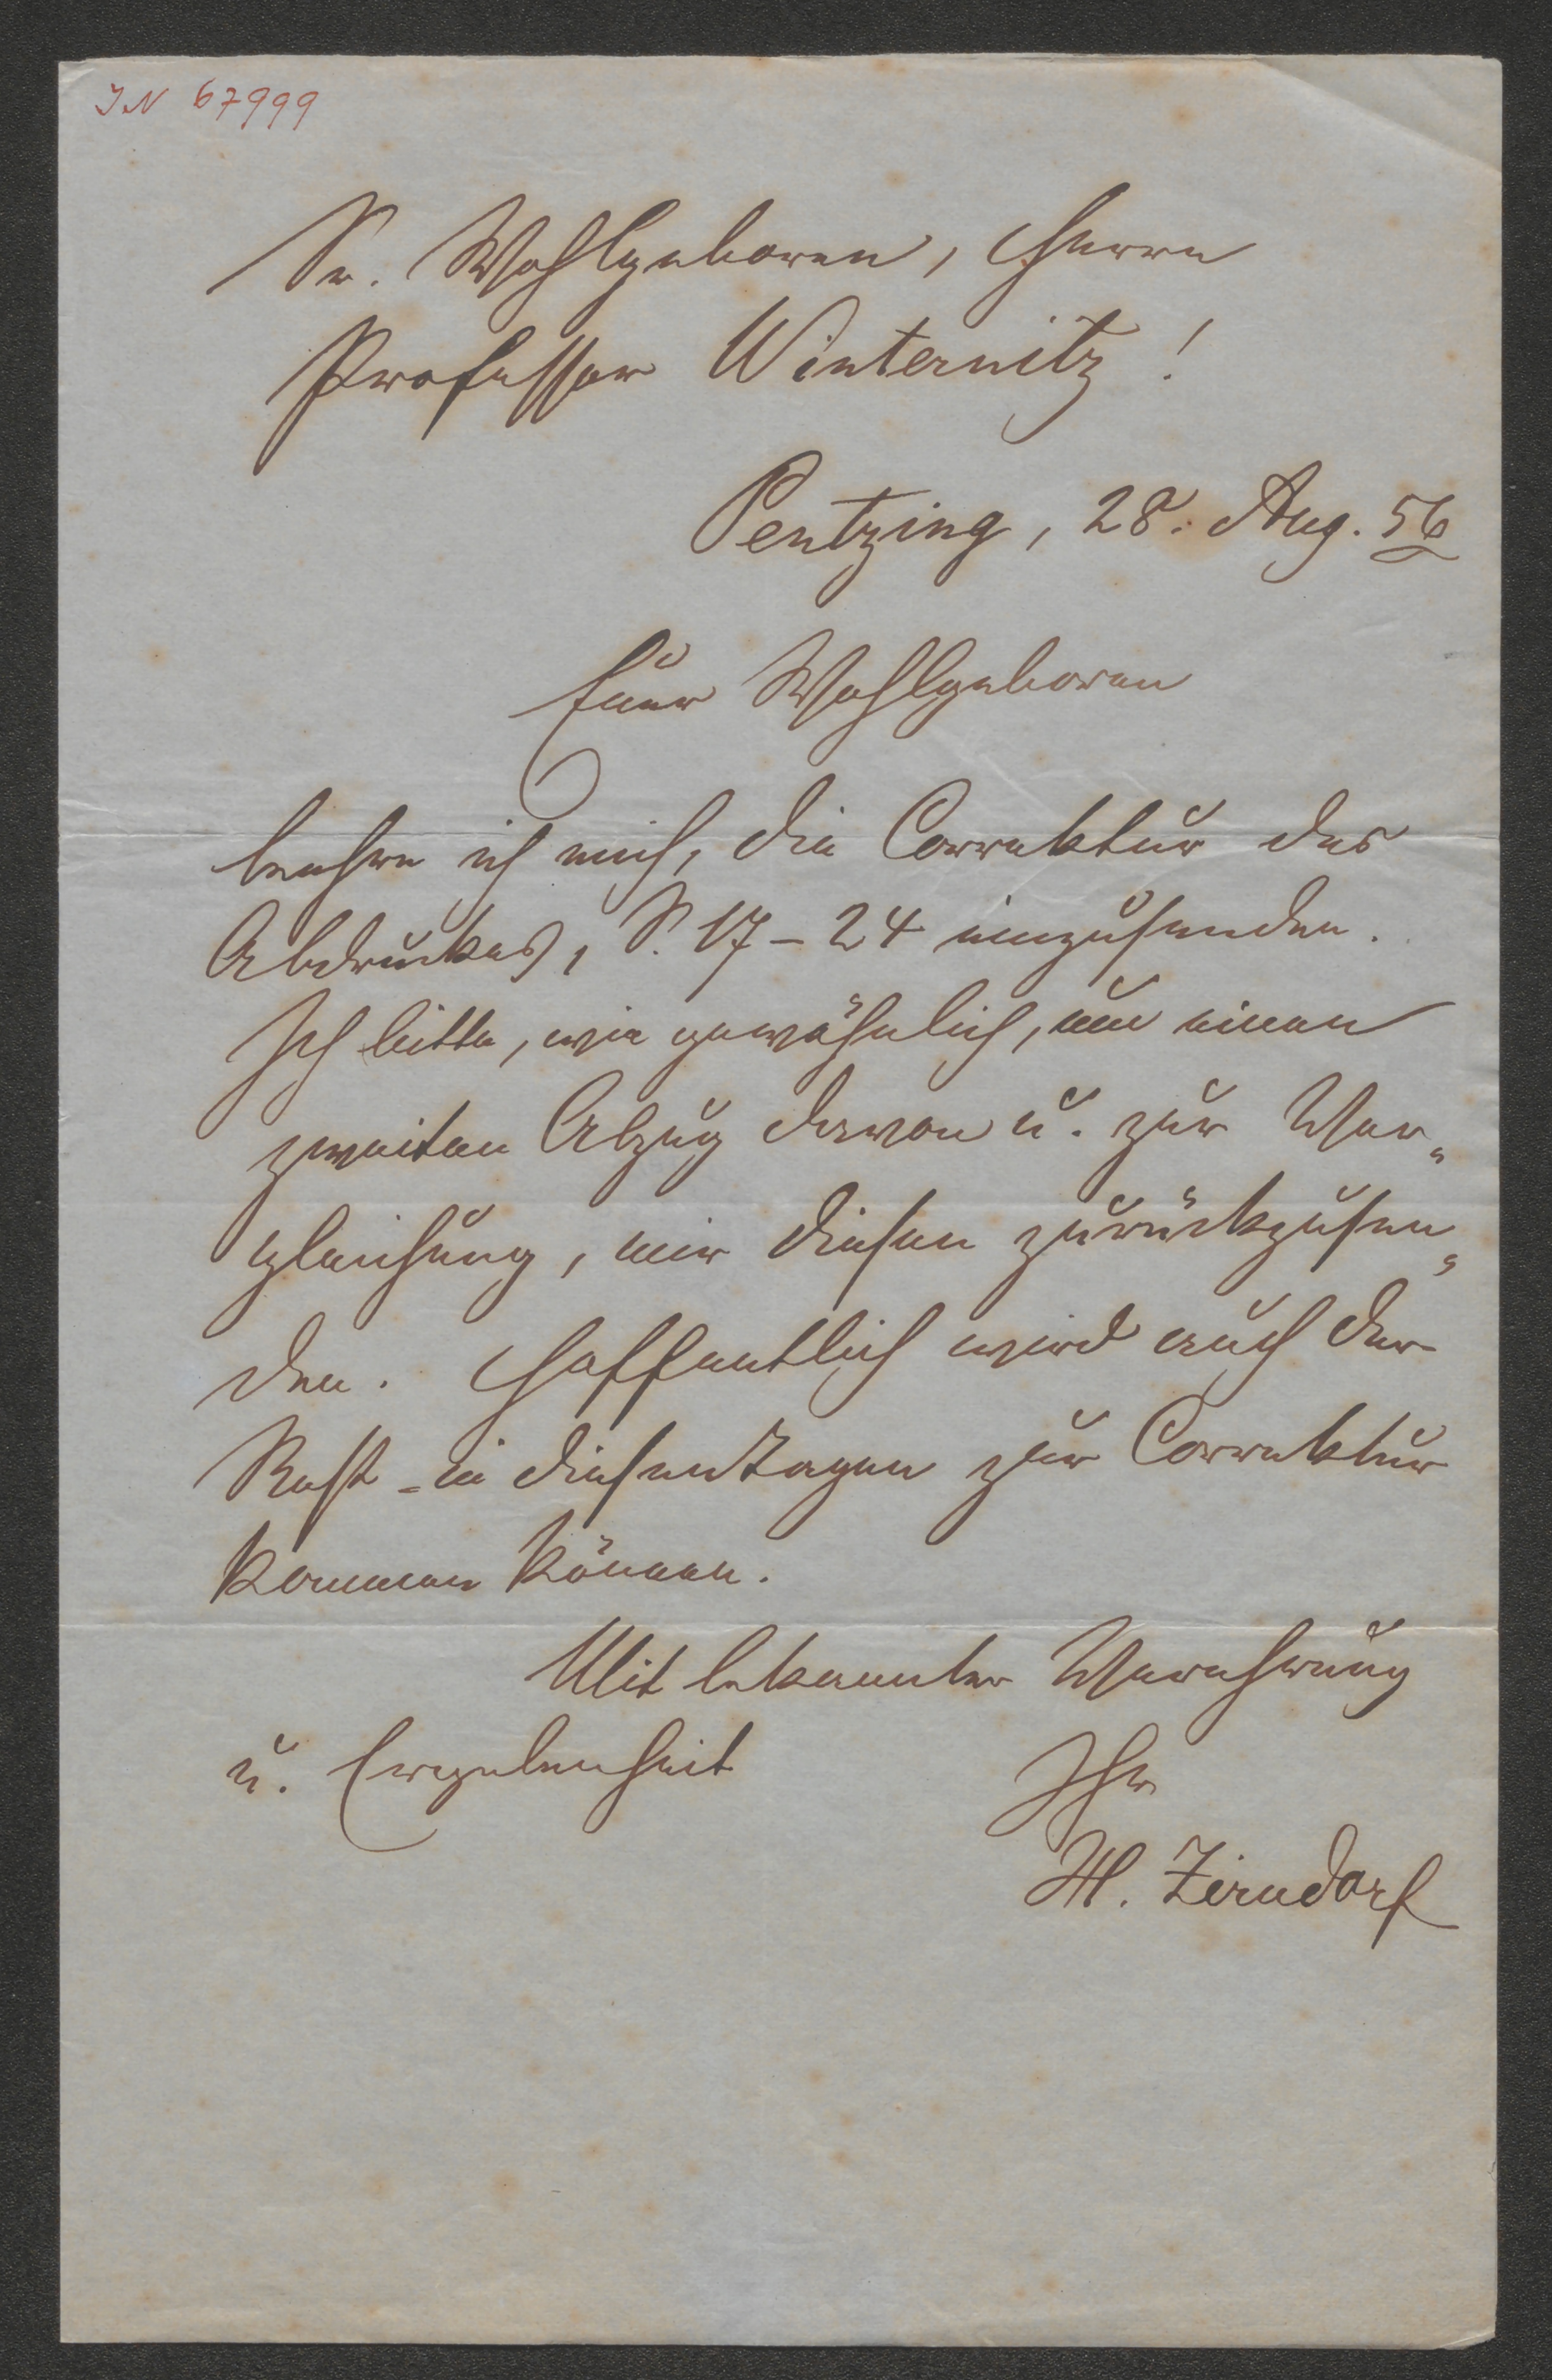 IN 67999
Sr. Wohlgeboren, Herrn
Professor Winternitz!
Pentzing, 28. Aug. 56
Euer Wohlgeboren
beehre ich mich, die Correktur des
Abdruckes, S. 17 – 24 einzusenden.
Ich bitte, wie gewöhnlich, um einen
zweiten Abzug davon u. zur Ver„
gleichung, mir diesen zurückzusen„
den. Hoffentlich wird auch der
Rest in diesen Tagen zur Correktur
kommen können.
Mit bekannter Verehrung
u. Ergebenheit
Ihr
H. Zirndorf